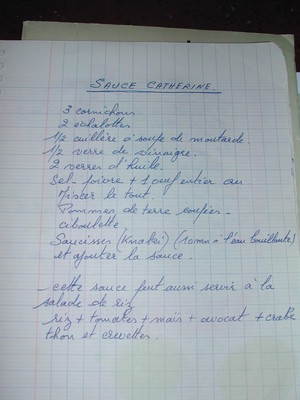 SAUCE CATHERINE.
3 cornichons
2 echalottes
1/2 cuillère à soupe de moutarde
1/2 verre de vinaigre.
2 verres d'huile.
Sel - poivre + 1 œuf entier au
Mixer le tout.
Pommes de terre coupées -
ciboulette
Saucisses (Knakei) (10 mn à l'eau bouillante)
et ajouter la sauce.
- cette sauce peut aussi servir à la
salade de riz
riz + tomates + maïs + avocat + crabe
thon et crevettes.